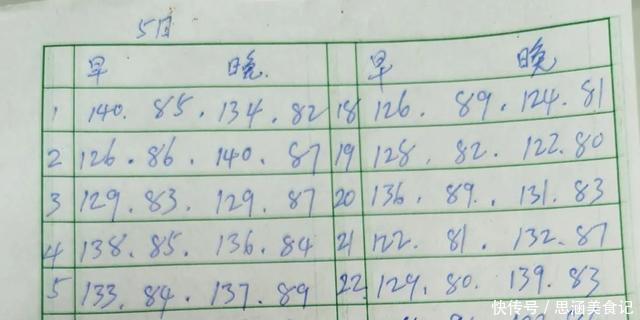 5月
早 晚 早 晚
1 140. 85. 134. 82 18 126. 89. 124. 81
2 126. 86. 140. 87 19 128. 82. 122. 80
3 129. 83. 129. 87 20 136. 89. 131. 83
4 138. 85. 136. 84 21 122. 81. 132. 87
5 133. 84. 137. 89 22 129. 80. 139. 83
快传号／思涵美食记